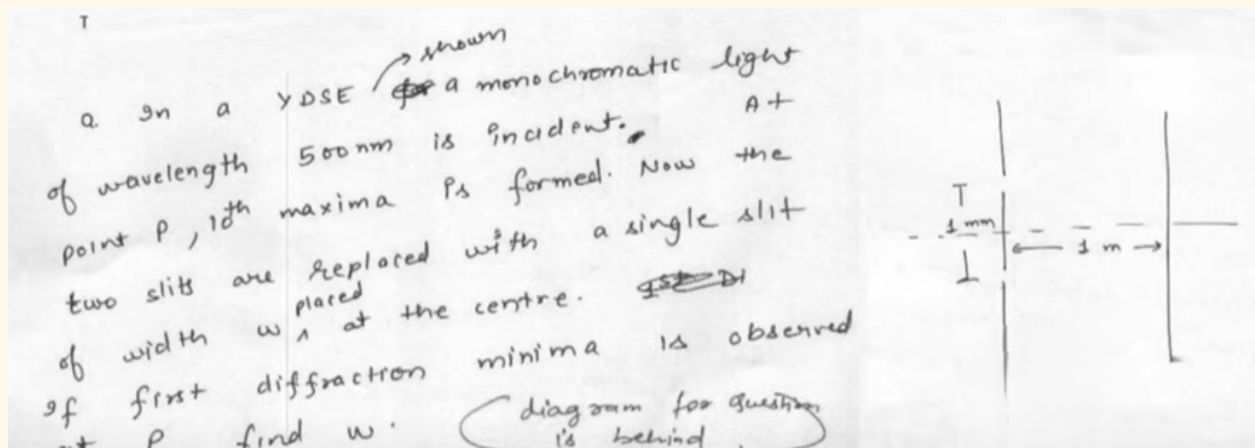 T
Q. In a YDSE shown a monochromatic light
of wavelength 500nm is incident. At
point P, 10th maxima is formed. Now the
two slits are replaced with a single slit
of width w placed at the centre.
If first diffraction minima is observed
at P find w.
(diagram for question
is behind.)
1 mm
1 m